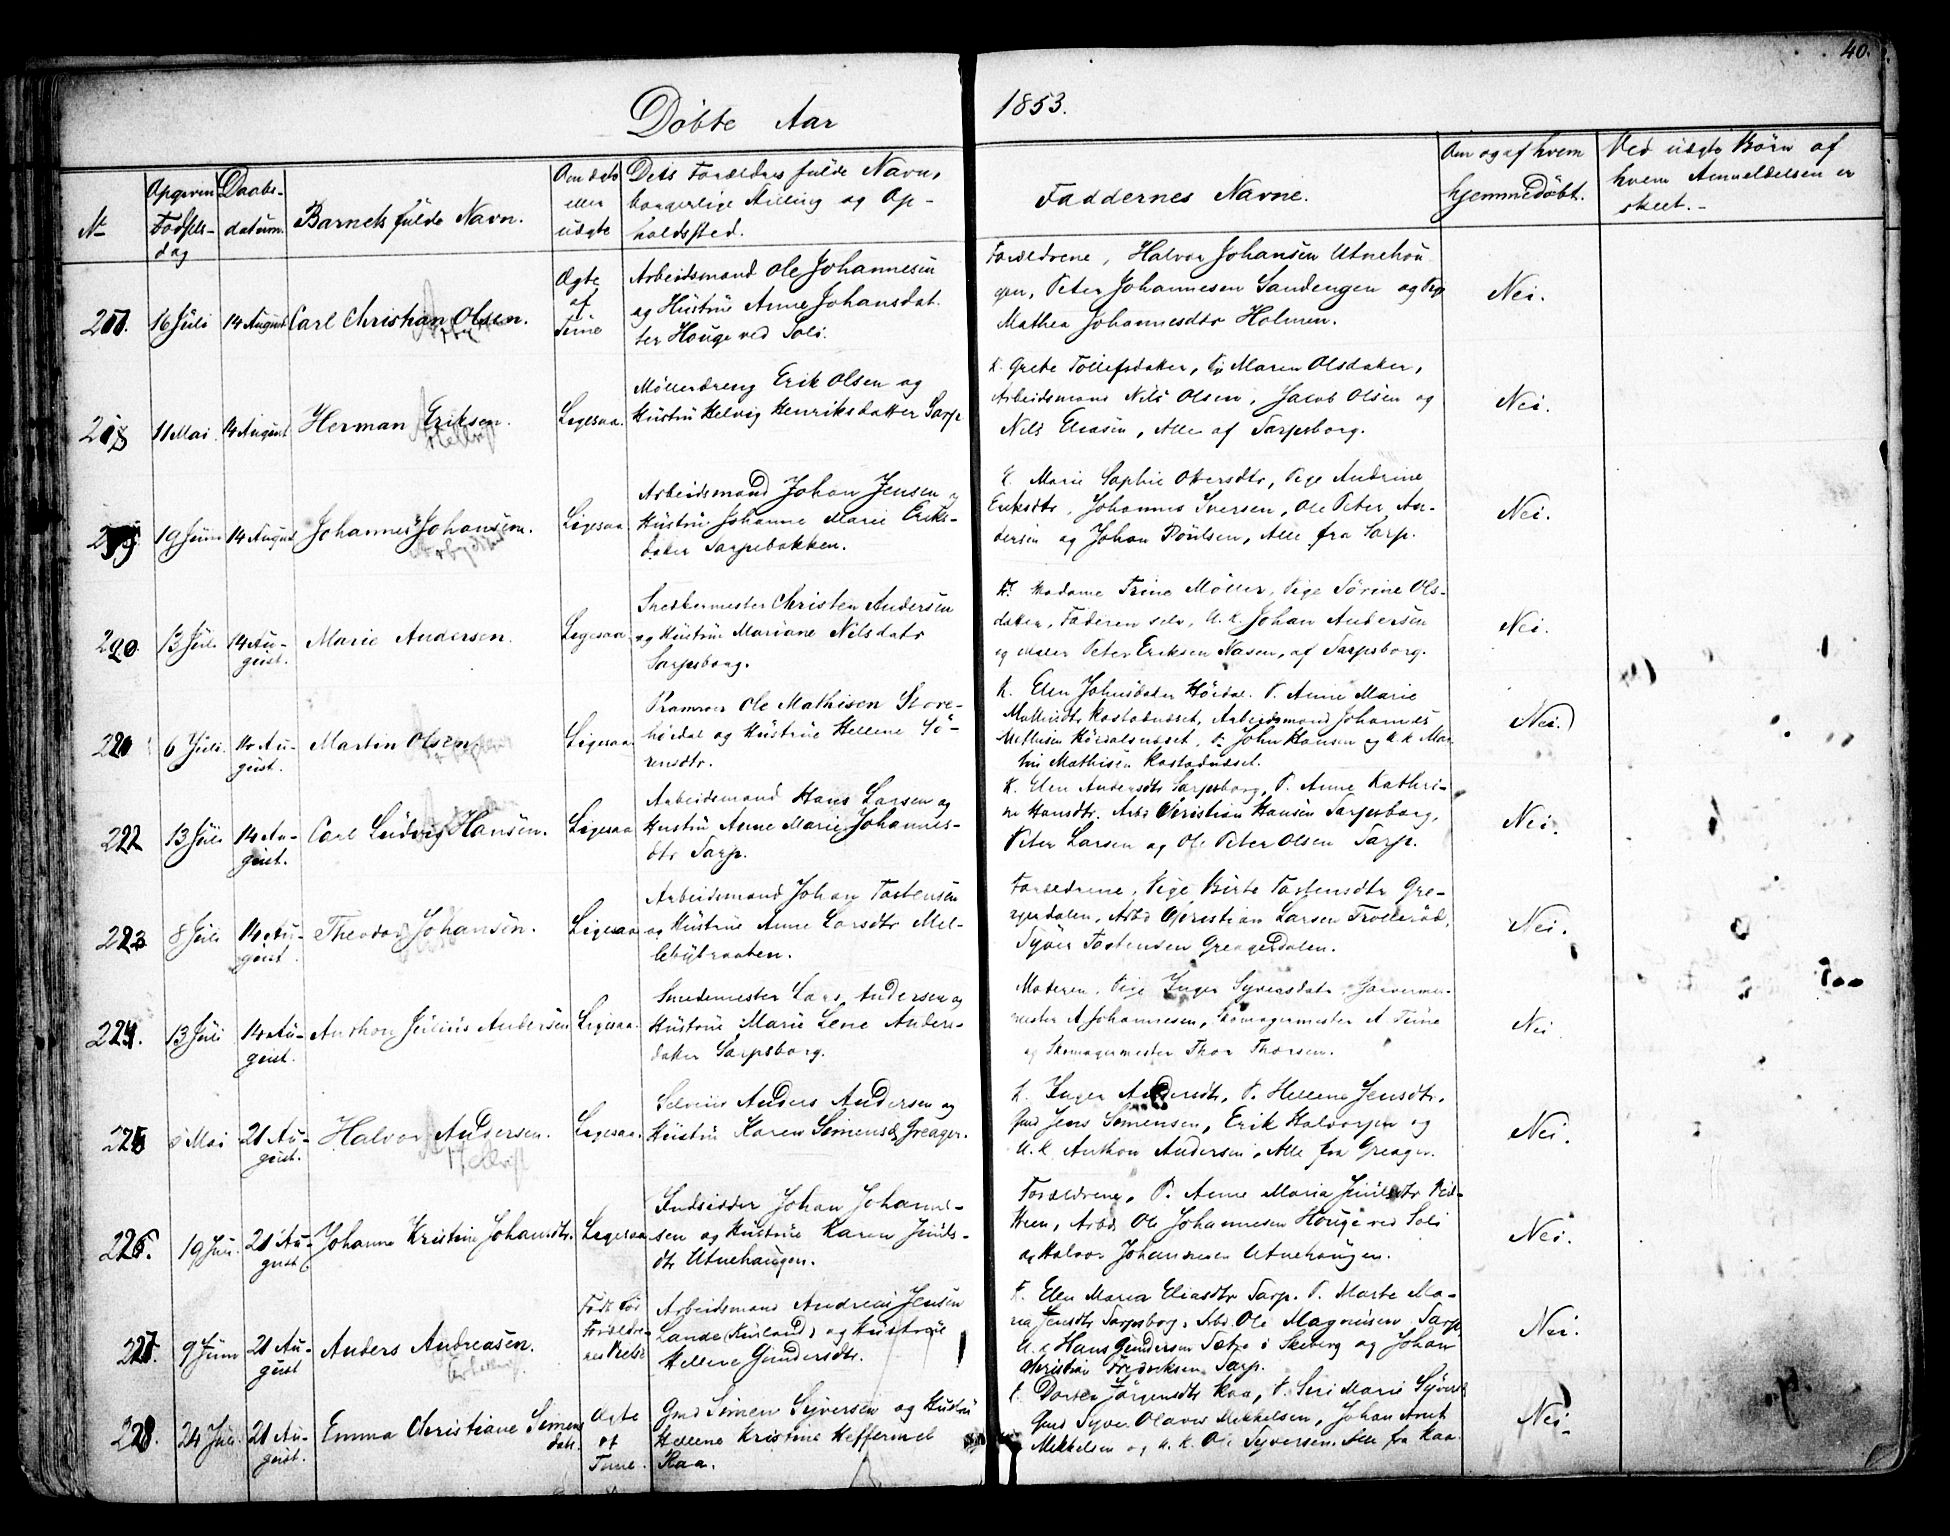 40.
Döbte Aar 1853.
No
Opgiven Fødsels-dag
Daabs-datum.
Barnets fulde Navn.
Om ægte eller uægte
Dets Forældres fulde Navn, borgerlige Stilling og Op-
holdssted.
Faddernes Navne.
Om og af hvem hjemmedöbt.
Ved uægte Börn af hvem Anmeldelsen er skeet.
217. 16 Juli 14 August Carl Christian Olsen.
Ægte af
Arbeidsmand Ole Johannesen
og Hustru Anne Johansdat-
ter Houge ved Soli.
Forældrene, Halvor Johansen Utnehou
gen, Peter Johannesen Sandengen og Pig
Mathea Johannesdtr Holmen.
Nei.
218 11 Mai 14 August Herman Eriksen.
Ligesaa.
Møllerdreng Erik Olsen og
Hustru Helvig Henriksdatter Sarp
K. Grete Tollefsdatter, Pi Maren Olsdatter,
Arbeidsmand Nils Olsen, Jacob Olsen og
Nils Eliasen, Alle af Sarpsborg.
Nei.
219 19 Juni 14 August Johannes Johansen.
Ligesaa
Arbeidsmand Johan Jensen og
Hustru Johanne Marie Eriks-
datter Sarpebakken.
K. Marie Sophie Olversdtr, Pige Andrine
Eriksdtr, Johannes Iversen, Ole Peter An-
dersen og Johan Poulsen, Alle fra Sarp.
Nei.
220 13 Juli 14 Au-
gust.
Marie Andersen.
Ligesaa
Snedkermester Christen Andersen
og Hustru Mariane Nilsdatr
Sarpsborg.
K. Madame Trine Möller, Pige Sörine Ols-
datter, Faderen selv, U.K. Johan Andersen
og Peter Eriksen Nasen, af Sarpsborg.
Nei.
221 6 Juli 14 Au-
gust.
Martin Olsen
Ligesaa
Ole Mathisen Store-
hördal og Hustrue Hellene Sö-
rensdtr.
K. Elen Johnsdatter Hördal. P. Anne Marie
Arbeidsmand Johannes
Mathisen John Hansen og U.K. Mar-
tin Mathisen
Nei.
222 13 Juli 14 Au-
gust.
Carl Ludvig Hansen.
Ligesaa
Arbeidsmand Hans Larsen og
Hustru Anne Marie Johannes-
dtr Sarp.
K. Elen Andersdtr Sarpsborg, P. Anne Kathri-
ne Hansdtr. Arbd Christian Hansen Sarpsborg,
Peter Larsen og Ole Peter Olsen Sarp.
Nei.
223 8 Juli 14 Au-
gust
Theodor Johansen.
Ligesaa
Arbeidsmand Johan Tostensen
og Hustrue Anne Larsdtr Mel-
lebybraaten.
Forældrene, Pige Birte Tostensdtr Gre-
gerdalen, Arbd Christian Larsen Trolleröd,
Syver Tostensen Greagerdalen.
Nei.
224. 13 Juli 14 Au-
gust.
Anthon Julius Andersen
Ligesaa.
Smedemester Lars Andersen og
Hustrue Marie Lene Anders-
datter Sarpsborg.
Moderen. Pige Inger Syversdatr Garverme-
mester A Johannesen, Skomagermester A.
og Skomagermester Thor Thorsen.
Nei
225 5 Mai 21 Au-
gust.
Halvor Andersen.
Ligesaa.
Selveier Anders Andersen og
Hustru Karen Simensd. Greager.
K. Inger Andersdtr, P. Hellene Jensdtr.
Gmd Jens Simensen, Erik Halvorsen og
U.K. Anthon Andersen, Alle fra Greager.
Nei.
226. 19 Juni 21 Au-
gust
Johanne Kristine Johansdtr.
Ligesaa
Indsidder Johan Johanne-
sen og Hustrue Karen Juuls-
dtr Utnehaugen.
Forældrene, P. Anne Maria Juulsdtr
Arbd. Ole Johannesen Houge ved Soli
og Halvor Johannesen Utnehougen.
Nei.
227. 9 Juni 21 Au-
gust
Anders Andreasen.
Født før
Forældre-
nes
Arbeidsmand Andreas Jensen
Lande og Hustrue
Hellene Gundersdtr.
K. Elen Maria Eliasdtr Sarp. P. Marte Ma-
ria Jensdtr Sarpsborg, Arbd. Ole Magnusen Sarp,
U.K Hans Gundersen i Skeberg og Johan
Christian Fredriksen Sarp.
Nei.
228. 24 Juli 21 Au-
gust.
Emma Christiane Simens
datr.
Ægte
Gmd Simen Syversen og Hustru
Hellene Kristine Heffermel
Raa.
K. Dorte Jörgensdtr Raa, P. Seri Marie Syversd
Gmd Syver Olaves Mikkelsen, Johan Arnt
Mikkelsen og U.K. Ole Syversen. Alle fra Raa.
Nei.